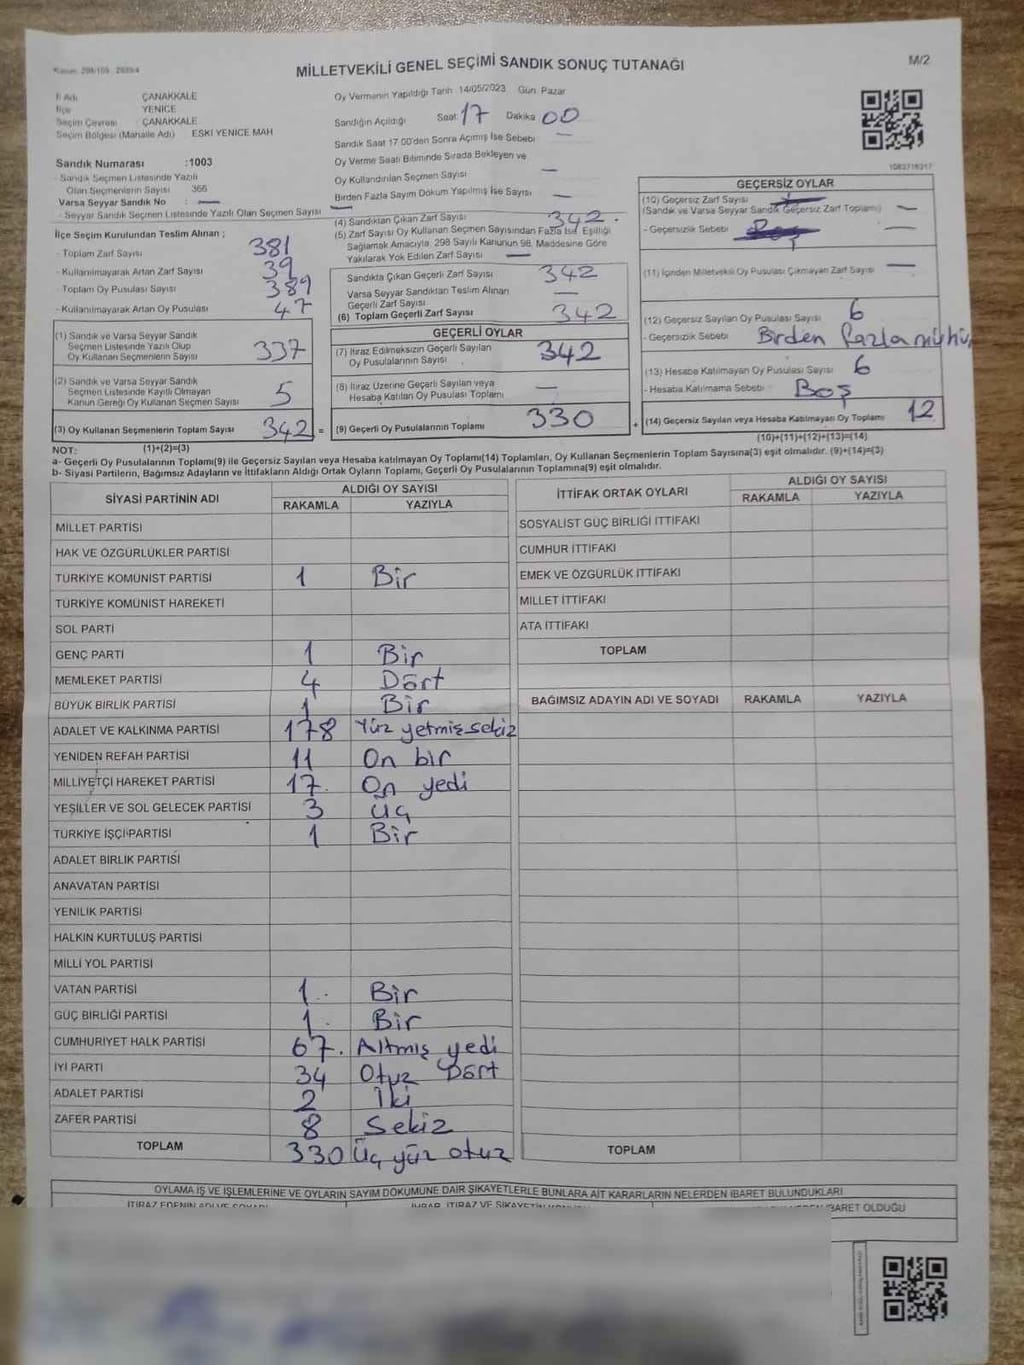 MİLLETVEKİLİ GENEL SEÇİMİ SANDIK SONUÇ TUTANAĞI
M/2
İl Adı ÇANAKKALE
İlçe YENİCE
Seçim Çevresi ÇANAKKALE
Seçim Bölgesi (Mahalle Adı) ESKİ YENİCE MAH
Sandık Numarası :1003
- Sandık Seçmen Listesinde Yazılı
Olan Seçmenlerin Sayısı 366
Varsa Seyyar Sandık No : —
- Seyyar Sandık Seçmen Listesinde Yazılı Olan Seçmen Sayısı —
İlçe Seçim Kurulundan Teslim Alınan ;
- Toplam Zarf Sayısı 381
- Kullanılmayarak Artan Zarf Sayısı 39
- Toplam Oy Pusulası Sayısı 389
- Kullanılmayarak Artan Oy Pusulası 47
(1) Sandık ve Varsa Seyyar Sandık
Seçmen Listesinde Yazılı Olup
Oy Kullanan Seçmenlerin Sayısı 337
(2) Sandık ve Varsa Seyyar Sandık
Seçmen Listesinde Kayıtlı Olmayan
Kanun Gereği Oy Kullanan Seçmen Sayısı 5
(3) Oy Kullanan Seçmenlerin Toplam Sayısı 342 =
Oy Vermenin Yapıldığı Tarih 14/05/2023 Gün Pazar
Sandığın Açıldığı Saat 17 Dakika 00
Sandık Saat 17.00'den Sonra Açılmış İse Sebebi —
Oy Verme Saati Bitiminde Sırada Bekleyen ve
Oy Kullandırılan Seçmen Sayısı —
Birden Fazla Sayım Döküm Yapılmış İse Sayısı —
(4) Sandıktan Çıkan Zarf Sayısı 342.
(5) Zarf Sayısı Oy Kullanan Seçmen Sayısından Fazla İse, Eşitliği
Sağlamak Amacıyla, 298 Sayılı Kanunun 98. Maddesine Göre
Yakılarak Yok Edilen Zarf Sayısı —
Sandıkta Çıkan Geçerli Zarf Sayısı 342
Varsa Seyyar Sandıktan Teslim Alınan
Geçerli Zarf Sayısı —
(6) Toplam Geçerli Zarf Sayısı 342
GEÇERLİ OYLAR
(7) İtiraz Edilmeksizin Geçerli Sayılan
Oy Pusulalarının Sayısı 342
(8) İtiraz Üzerine Geçerli Sayılan veya
Hesaba Katılan Oy Pusulası Toplamı —
(9) Geçerli Oy Pusulalarının Toplamı 330 +
1083716317
GEÇERSİZ OYLAR
(10) Geçersiz Zarf Sayısı
(Sandık ve Varsa Seyyar Sandık Geçersiz Zarf Toplamı) —
- Geçersizlik Sebebi Boş —
(11) İçinden Milletvekili Oy Pusulası Çıkmayan Zarf Sayısı —
(12) Geçersiz Sayılan Oy Pusulası Sayısı 6
- Geçersizlik Sebebi Birden fazla mühür
(13) Hesaba Katılmayan Oy Pusulası Sayısı 6
- Hesaba Katılmama Sebebi Boş
(14) Geçersiz Sayılan veya Hesaba Katılmayan Oy Toplamı 12
NOT: (1)+(2)=(3) (10)+(11)+(12)+(13)=(14)
a- Geçerli Oy Pusulalarının Toplamı(9) ile Geçersiz Sayılan veya Hesaba katılmayan Oy Toplamı(14) Toplamları, Oy Kullanan Seçmenlerin Toplam Sayısına(3) eşit olmalıdır. (9)+(14)=(3)
b- Siyasi Partilerin, Bağımsız Adayların ve İttifakların Aldığı Ortak Oyların Toplamı, Geçerli Oy Pusulalarının Toplamına(9) eşit olmalıdır.
SİYASİ PARTİNİN ADI ALDIĞI OY SAYISI
RAKAMLA YAZIYLA
MİLLET PARTİSİ
HAK VE ÖZGÜRLÜKLER PARTİSİ
TÜRKİYE KOMÜNİST PARTİSİ 1 Bir
TÜRKİYE KOMÜNİST HAREKETİ
SOL PARTİ
GENÇ PARTİ 1 Bir
MEMLEKET PARTİSİ 4 Dört
BÜYÜK BİRLİK PARTİSİ 1 Bir
ADALET VE KALKINMA PARTİSİ 178 Yüz yetmiş sekiz
YENİDEN REFAH PARTİSİ 11 On bir
MİLLİYETÇİ HAREKET PARTİSİ 17. On yedi
YEŞİLLER VE SOL GELECEK PARTİSİ 3 Üç
TÜRKİYE İŞÇİ PARTİSİ 1 Bir
ADALET BİRLİK PARTİSİ
ANAVATAN PARTİSİ
YENİLİK PARTİSİ
HALKIN KURTULUŞ PARTİSİ
MİLLİ YOL PARTİSİ
VATAN PARTİSİ 1. Bir
GÜÇ BİRLİĞİ PARTİSİ 1. Bir
CUMHURİYET HALK PARTİSİ 67. Altmış yedi
İYİ PARTİ 34 Otuz Dört
ADALET PARTİSİ 2 İki
ZAFER PARTİSİ 8 Sekiz
TOPLAM 330 Üç yüz otuz
İTTİFAK ORTAK OYLARI ALDIĞI OY SAYISI
RAKAMLA YAZIYLA
SOSYALİST GÜÇ BİRLİĞİ İTTİFAKI
CUMHUR İTTİFAKI
EMEK VE ÖZGÜRLÜK İTTİFAKI
MİLLET İTTİFAKI
ATA İTTİFAKI
TOPLAM
BAĞIMSIZ ADAYIN ADI VE SOYADI RAKAMLA YAZIYLA
TOPLAM
OYLAMA İŞ VE İŞLEMLERİNE VE OYLARIN SAYIM DÖKÜMÜNE DAİR ŞİKAYETLERLE BUNLARA AİT KARARLARIN NELERDEN İBARET BULUNDUKLARI
İTİRAZ EDENİN ADI VE SOYADI
İBARET OLDUĞU